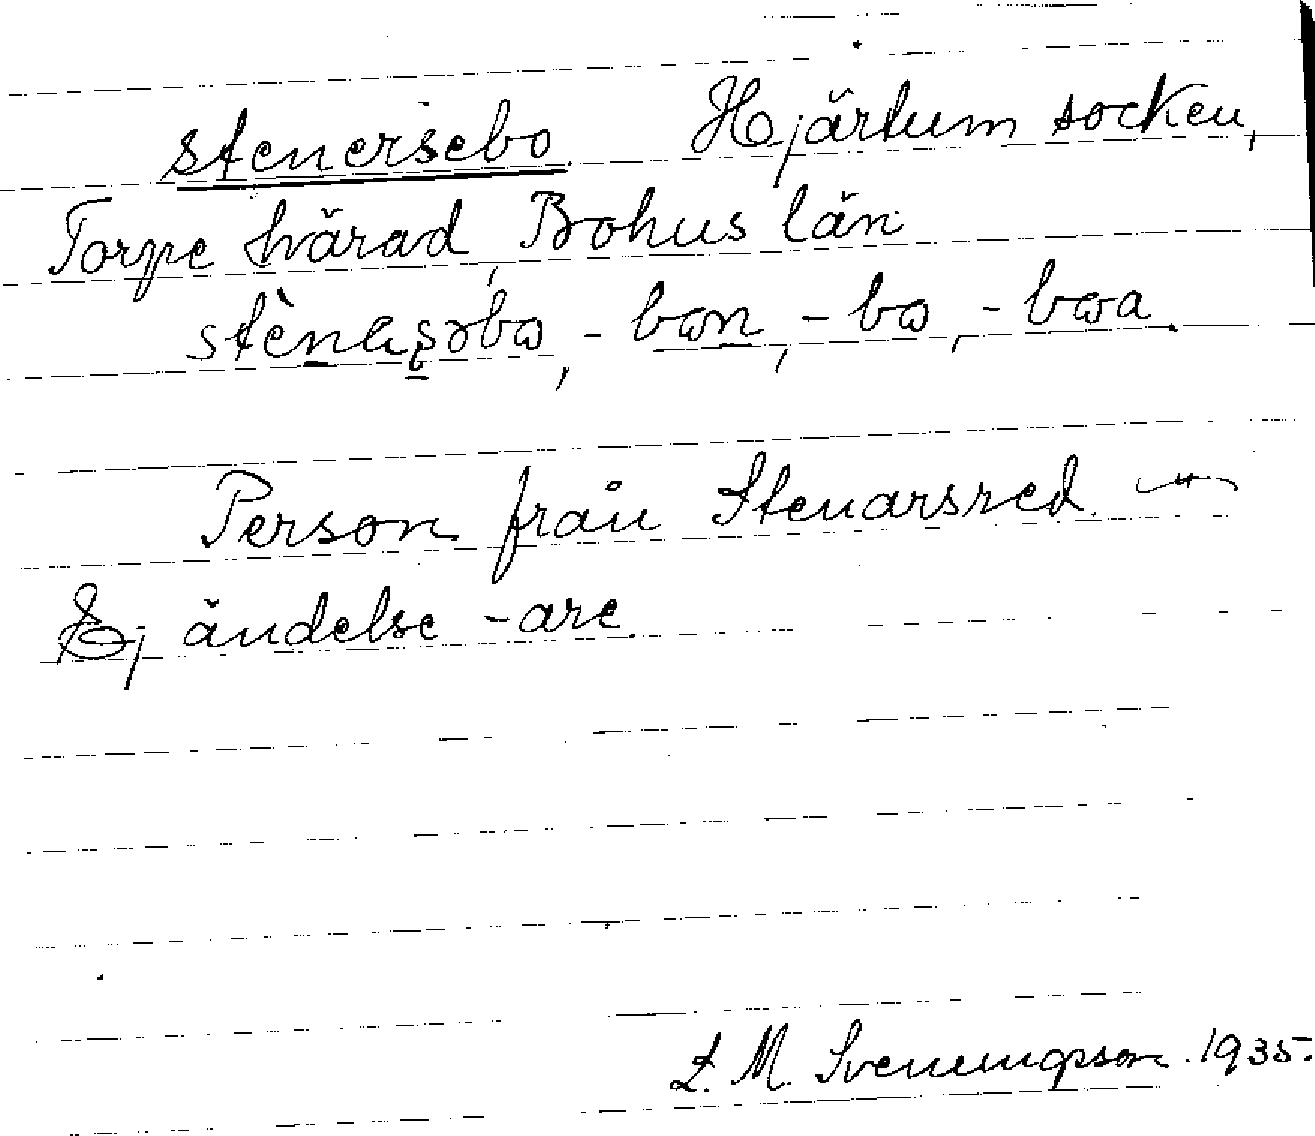 stenersebo Hjärtum socken,
Torpe härad, Bohus län
stènaṣəbɷ, -bɷn, -bɷ, -bɷa
Person från Stenarsred. –"–
Ej ändelse -are
L. M. Svenungsson. 1935.